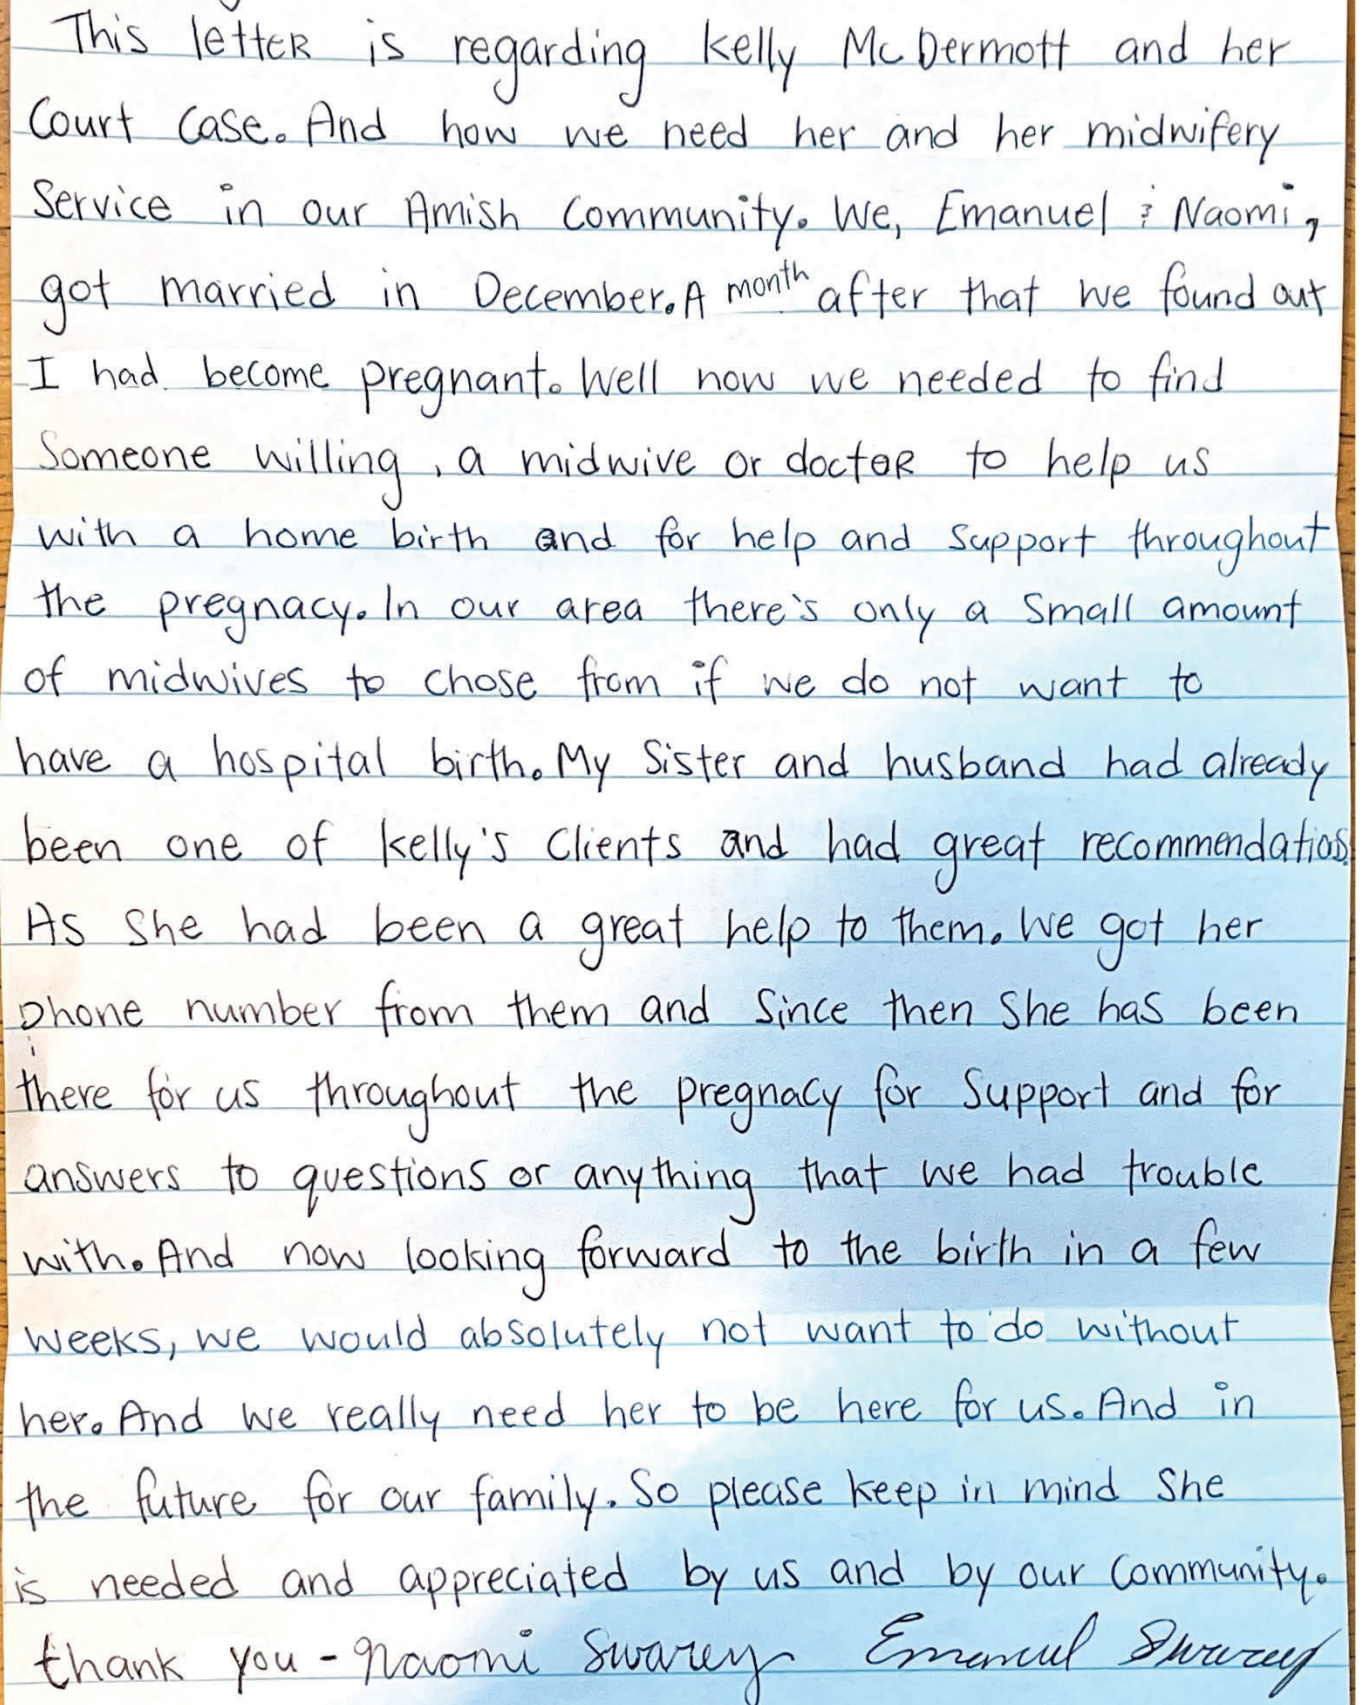 This letter is regarding Kelly McDermott and her
Court Case. And how we need her and her midwifery
Service in our Amish Community. We, Emanuel & Naomi,
got married in December. A month after that we found out
I had become pregnant. Well now we needed to find
Someone willing, a midwive or doctor to help us
with a home birth and for help and Support throughout
the pregnacy. In our area there's only a Small amount
of midwives to chose from if we do not want to
have a hospital birth. My Sister and husband had already
been one of Kelly's Clients and had great recommendatios.
As She had been a great help to them. We got her
phone number from them and Since then She has been
there for us throughout the pregnacy for Support and for
answers to questions or anything that we had trouble
with. And now looking forward to the birth in a few
weeks, we would absolutely not want to do without
her. And we really need her to be here for us. And in
the future for our family. So please keep in mind She
is needed and appreciated by us and by our Community.
thank you - Naomi Swarey Emanuel Swarey